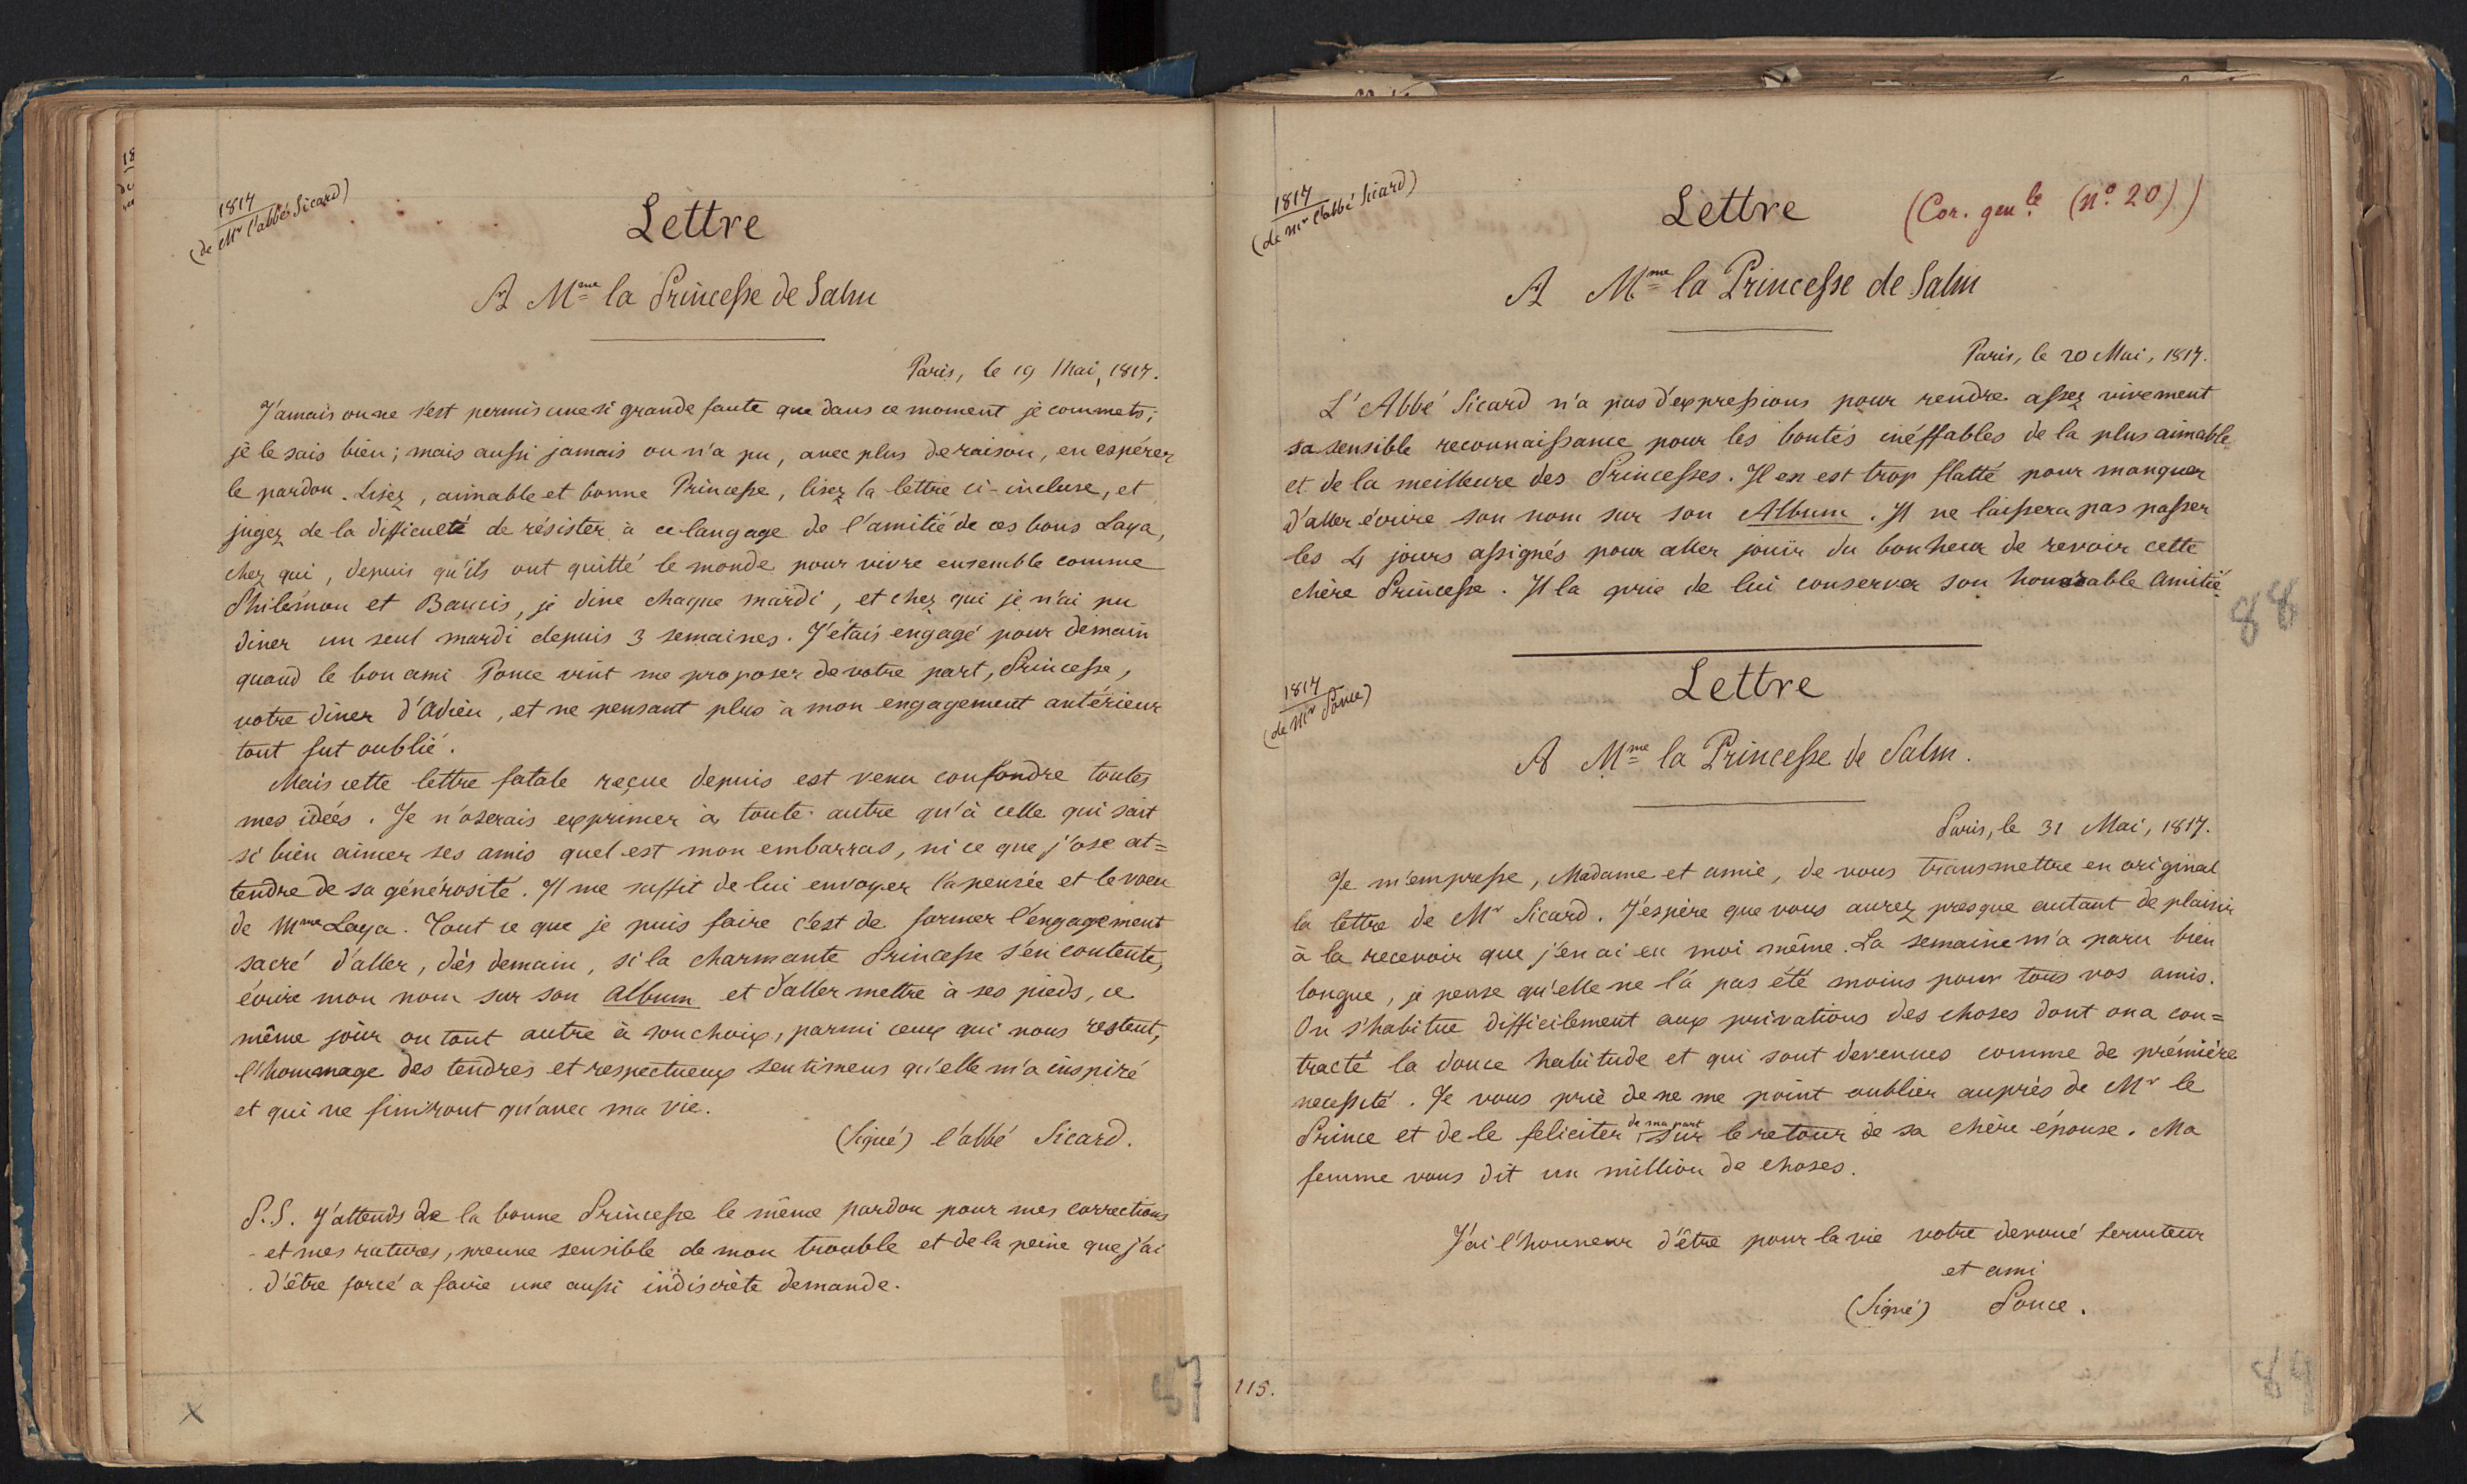 1817
(de Mr l'abbé Sicard)
Lettre
A Mme la Princesse de Salm
Paris, le 19 Mai, 1817.
J'amais on ne s'est permis une si grande faute que dans ce moment je commets;
je le sais bien; mais aussi jamais on n'a pu, avec plus de raison, en espérer
le pardon. Lisez, aimable et bonne Princesse, lisez la lettre ci-incluse, et
jugez de la difficulté de résister à ce langage de l'amitié de ces bons Laya,
chez qui, depuis qu'ils ont quitté le monde pour vivre ensemble comme
Philémon et Baucis, je dine chaque mardi, et chez qui je n'ai pu
diner un seul mardi depuis 3 semaines. J'étais engagé pour demain
quand le bon ami Ponce vint me proposer de votre part, Princesse,
votre diner d'Adieu, et ne pensant plus à mon engagement antérieur
tout fut oublié.
Mais cette lettre fatale reçue depuis est venu confondre toutes
mes idées. Je n'oserais exprimer à toute autre qu'à celle qui sait
si bien aimer ses amis quel est mon embarras, ni ce que j'ose at=
tendre de sa générosité. Il me suffit de lui envoyer la pensée et le voeu
de Mme Laya. Tout ce que je puis faire c'est de former l'engagement
sacré d'aller, dès demain, si la charmante Princesse s'en contente,
écrire mon nom sur son Album et d'aller mettre à ses pieds, ce
même jour ou tout autre à son choix, parmi ceux qui nous restent,
l'hommage des tendres et respectueux sentimens qu'elle m'a inspiré
et qui ne finiront qu'avec ma vie.
(Signé) l'abbé Sicard.
P.S. J'attends de la bonne Princesse le même pardon pour mes corrections
et mes ratures, preuve sensible de mon trouble et de la peine que j'ai
d'être forcé a faire une aussi indiscrète demande.
87
X
1817
(de Mr l'abbé Sicard)
Lettre
(Cor. genle (no 20))
A Mme la Princesse de Salm
Paris, le 20 Mai, 1817.
L'Abbé Sicard n'a pas d'expressions pour rendre assez vivement
sa sensible reconnaissance pour les bontés inéffables de la plus aimable
et de la meilleure des Princesses. Il en est trop flatté pour manquer
d'aller écrire son nom sur son Album. Il ne laissera pas passer
les 4 jours assignés pour aller jouir du bonheur de revoir cette
chère Princesse. Il la prie de lui conserver son honorable amitié
88
1817
(de Mr Ponce)
Lettre
A Mme la Princesse de Salm.
Paris, le 31 Mai, 1817.
Je m'empresse, Madame et amie, de vous transmettre en original
la lettre de Mr Sicard. J'espère que vous aurez presque autant de plaisir
à la recevoir que j'en ai eu moi même. La semaine m'a paru bien
longue, je pense qu'elle ne l'à pas été moins pour tous vos amis.
On s'habitue difficilement aux privations des choses dont on a con=
tracté la douce habitude et qui sont devenues comme de prémière
necessité. Je vous prie de ne me point oublier auprès de Mr le
Prince et de le feliciter de ma part sur le retour de sa chère épouse. Ma
femme vous dit un million de choses.
J'ai l'honneur d'être pour la vie votre devoué serviteur
et ami
(Signé) Ponce.
115.
89